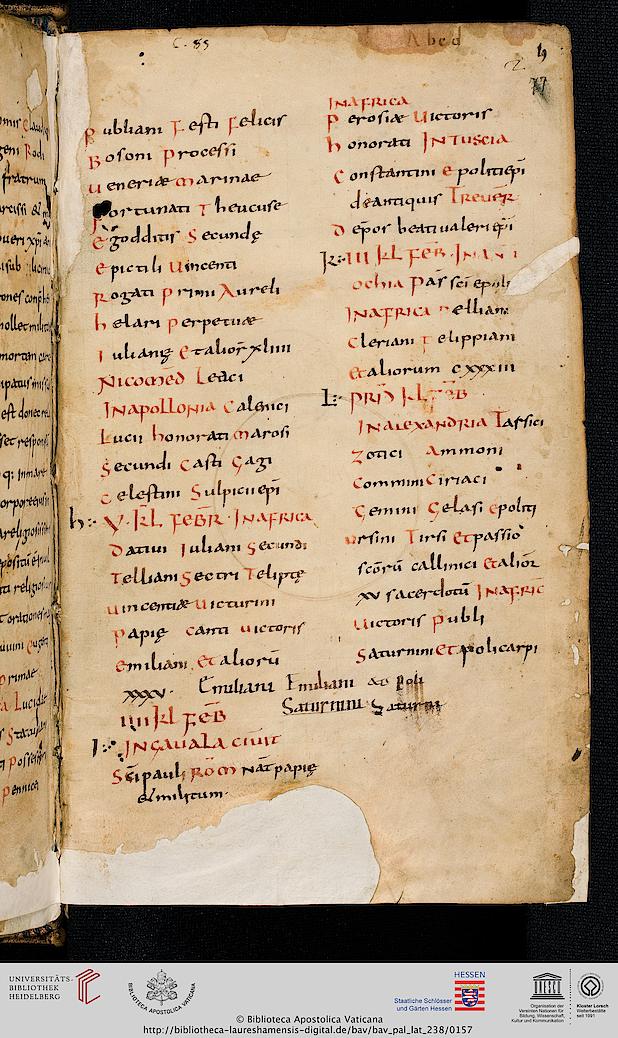 C. 55
Abcd
77
Publiani Festi Felicis
Bosoni Processi
Veneriae Marinae
Fortunati Theucuse
Egodditis Secundę
Epictili Vincenti
Rogati Primi Aureli
Helari Perpetuae
Iulianę Et alior xliiii
Nicomed Leuci
In Apollonia Calenici
Lucii Honorati Marosi
Secundi Casti Gagi
Celestini Sulpicii epi
h: V· KL FEBR· IN AFRICA
Dativi Iuliani Secundi
Telliani Sectri Teliptę
Vincentiae Victurini
Papię Canti Victoris
Emiliani Et aliorū
xxxv.
Emiliani Emiliani
Saturnini Saturni
IIII KL FEB
I: IN GAVALA CIVIT
Sci pauli ROM Nat papię
& militum·
IN AFRICA
Perosiae Victoris
Honorati IN TUSCIA
Constantini Epoliti epi
de antiquis Trever
Depos beati valeri epi
K: III KL FEB· IN ANTI
ochia Passi epoli
IN AFRICA Pelliani
Cleriani Felippiani
Et aliorum cxxxiii
L: PRID KL FEB
IN ALEXANDRIA Tarsici
Zotici Ammoni
Commini Ciriaci
Gemini Gelasi Epoliti
Ursini Tirsi Et passio
scōrū callinici Et alior
xv sacerdotū IN AFRIC
Victoris Publi
Saturnini Et policarpi
UNIVERSITÄTS-
BIBLIOTHEK
HEIDELBERG
BIBLIOTECA APOSTOLICA VATICANA
Staatliche Schlösser
und Gärten Hessen
HESSEN
Organisation der
Vereinten Nationen für
Bildung, Wissenschaft,
Kultur und Kommunikation
Kloster Lorsch
Welterbestätte
seit 1991
© Biblioteca Apostolica Vaticana
http://bibliotheca-laureshamensis-digital.de/bav/bav_pal_lat_238/0157